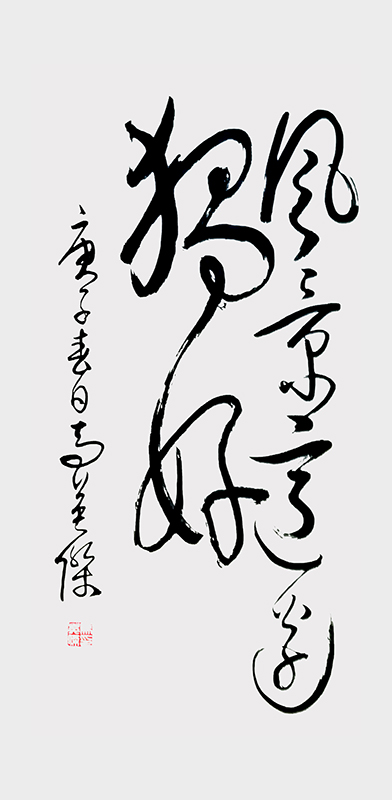 風景這邊
獨好
庚子春日高英傑